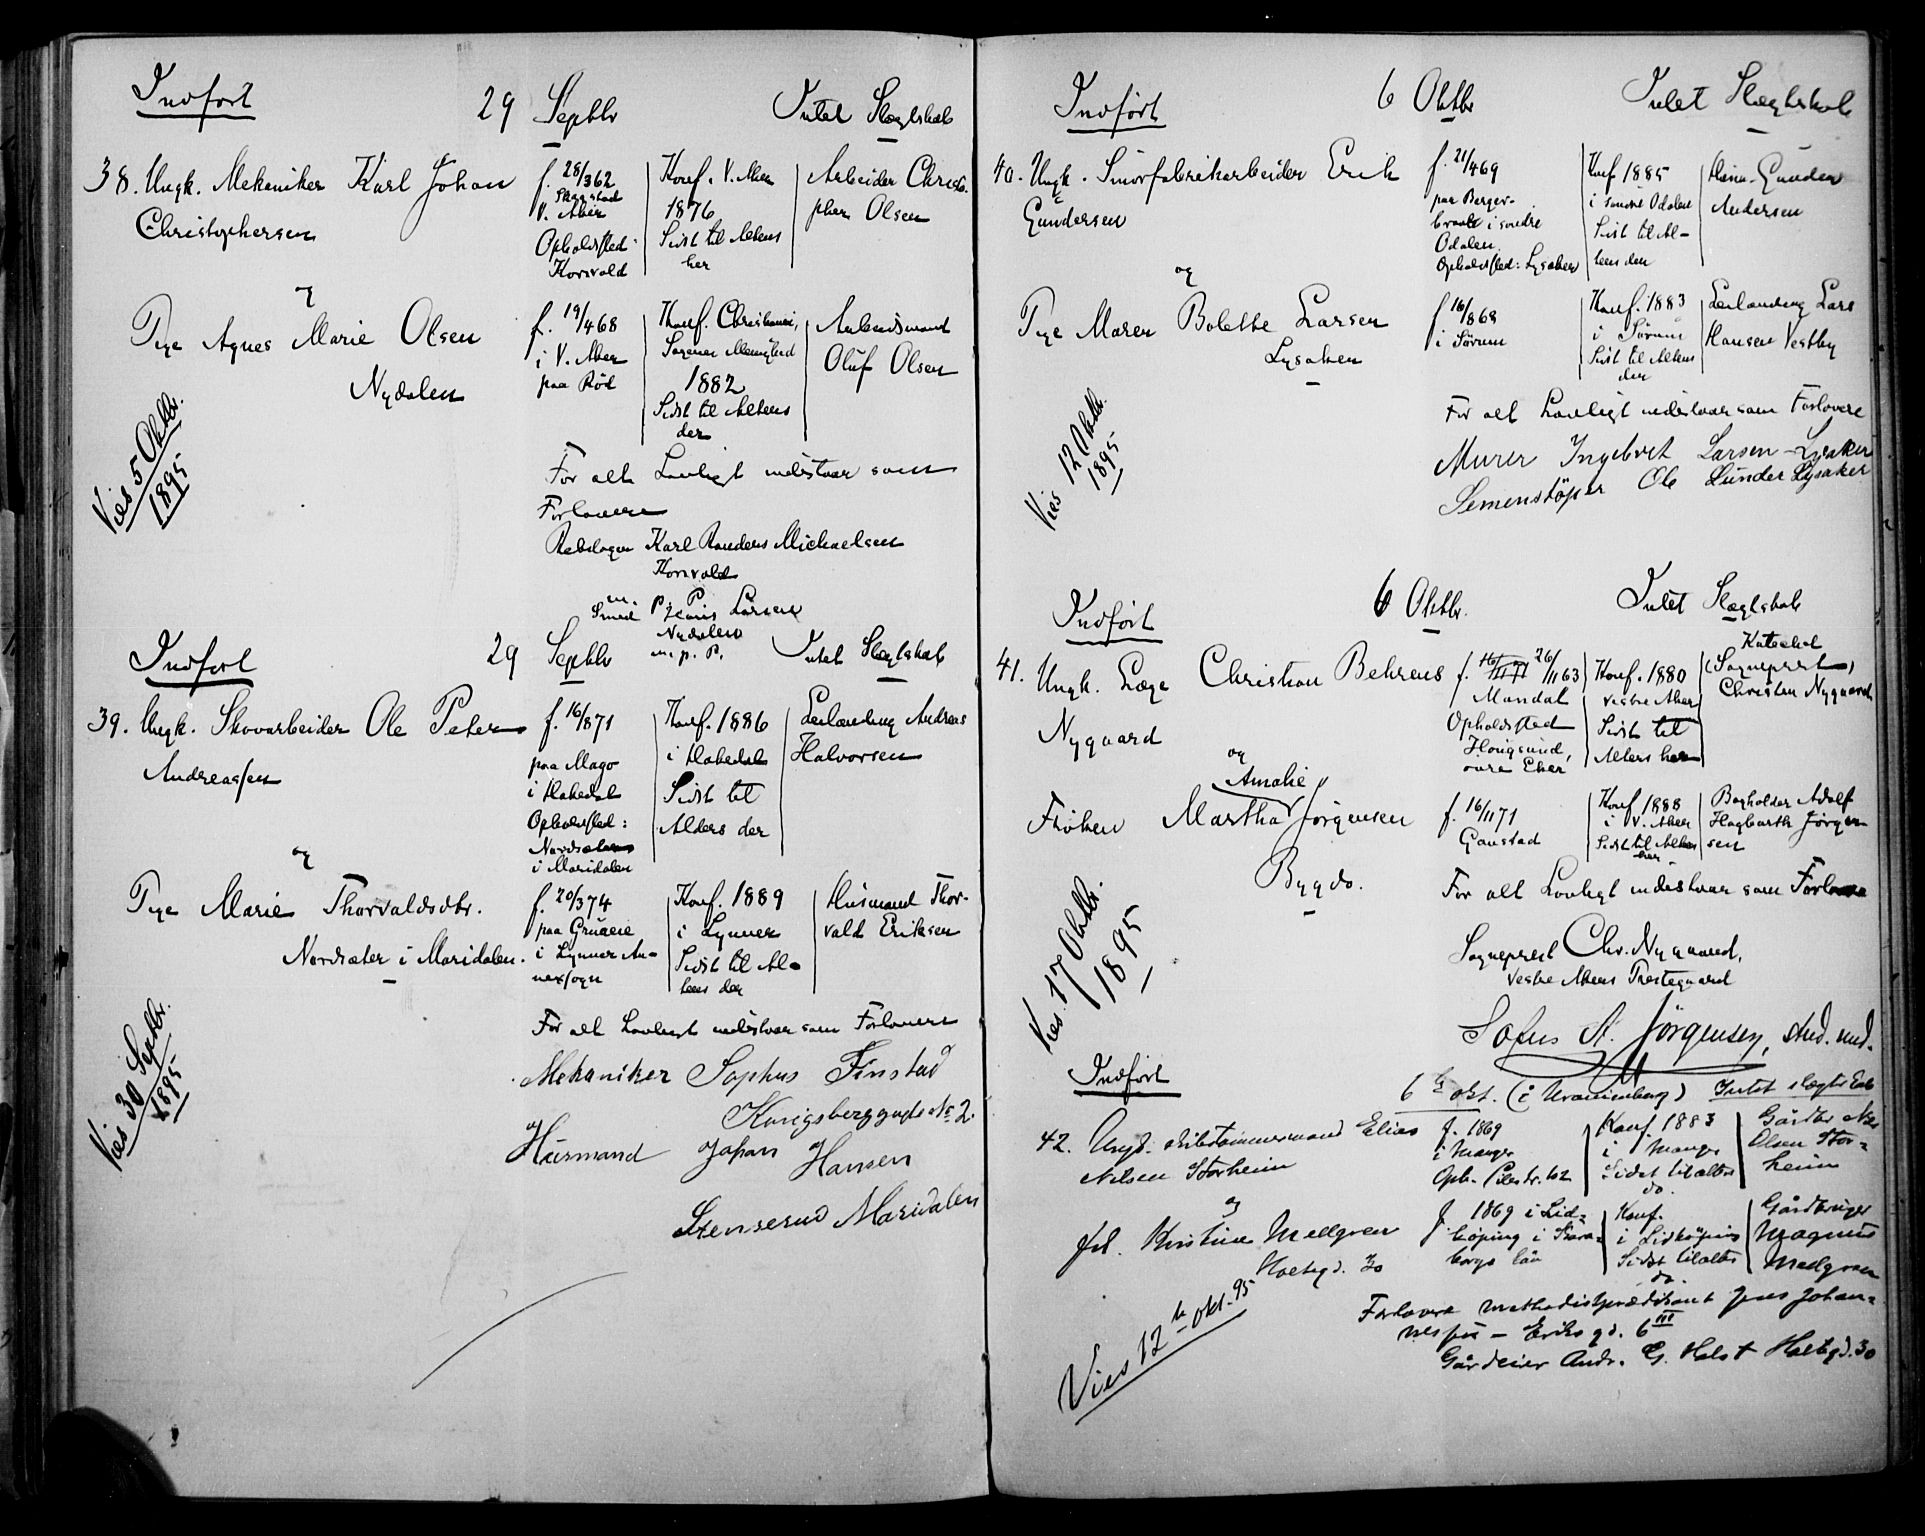 Indført
29 Septbr Intet Slægtskab
38. Ungk. Mekaniker Karl Johan
Christophersen
f. 28/3 62
V. Aker
Opholdssted:
Korsvold
Konf. V. Aker
1876
Sidst til Alters
her
Arbeider Christo-
pher Olsen
og
Pige Agnes Marie Olsen
Nydalen
f. 19/4 68
i V. Aker
paa Röd
Konf. Christiania,
1882
Sidst til Alters
der
Arbeidsmand
Oluf Olsen
Vies 5 Oktbr.
1895
For alt Lovligt indestaar som
Forlovere
Karl Randers Michaelsen
Korsvold
m. P. P.
Smed Larsen
Nydalen
m. p. P.
Indført
29 Septbr Intet Slægtskab
39. Ungk. Skovarbeider Ole Peter
Andreassen
f. 16/8 71
paa Mago
i Hakedal
Opholdssted:
Nordsæter
i Maridalen
Konf. 1886
i Hakedal
Sidst til
Alders der
Leilænding Andreas
Halvorsen
og
Pige Marie Thorvaldsdtr.
Nordsæter i Maridalen.
f. 20/3 74
paa Grua
i Lynner An-
nexsogn
Konf. 1889
i Lynner
Sidst til Al-
ters der
Husmand Thor-
vald Eriksen
Vies 30 Septbr.
1895
For alt Lovligt indestaar som Forlovere
Mekaniker Sophus Finstad
Kongsberggade No 2.
Husmand Johan Hansen
Stenserud Maridalen
Indført
6 Oktbr Intet Slægtskab
40. Ungk. Smörfabrikarbeider Erik
Gundersen
f. 21/4 69
paa Berger-
braate i søndre
Odalen
Opholdssted: Lysaker
Konf 1885
i søndre Odalen
Sidst til Al-
ters der
Gunder
Andersen
og
Pige Maren Bolette Larsen
Lysaker
f. 16/8 68
i Sørum
Konf. 1883
i Sørum
Sidst til Alters
der
Leilænding Lars
Hansen Vestby
Vies 12 Oktbr.
1895
For alt Lovligt indestaar som Forlovere
Murer Ingebret Larsen - Lysaker
Semenstöper Ole Lunder Lysaker
Indført
6 Oktbr. Intet Slægtskab
41. Ungk. Læge Christian Behrens
Nygaard
f. 16/11 71 26/11 63
Mandal
Opholdssted
Hougsund,
övre Eker
Konf. 1880
Vestre Aker
Sidst til
Alters her
Katechet
(Sogneprest)
Christen Nygaard
og
Amalie
Frøken Martha Jörgensen
Bygdø.
f. 16/11 71
Gaustad
Konf 1888
i V. Aker
Sidst til Alters
her
Bogholder Adolf
Hagbarth Jörgen-
sen
Vies. 17 Oktbr.
1895
For alt Lovligt indestaar som Forlovere
Sogneprest Chr. Nygaard,
Vestre Akers Prestegaard
Sofus A. Jörgensen, stud. med.
Indført
6te okt. (i Uranienborg) Intet slægtskab
42. Ungk. Elias
Nilsen Storheim
f. 1869
i Manger
Oph. Pilestr. 62
Konf. 1883
i Manger
Sidst tilalters
do.
Gårdbr Nils
Olsen Stor-
heim
og
Frk. Kristine Mellgren
Holtegd. 30
f. 1869 i Lid-
köping i Skara-
borgs län
Konf.
i Lidköping
Sidst tilalters
do.
Gårdbruger
Magnus
Mellgren
Vies 12te okt. 95
Forlovere Methodistprædikant Jens Johan-
nesen - Eriks gd. 6 III
Gårdeier Andr. G. Holst Holtegd. 30